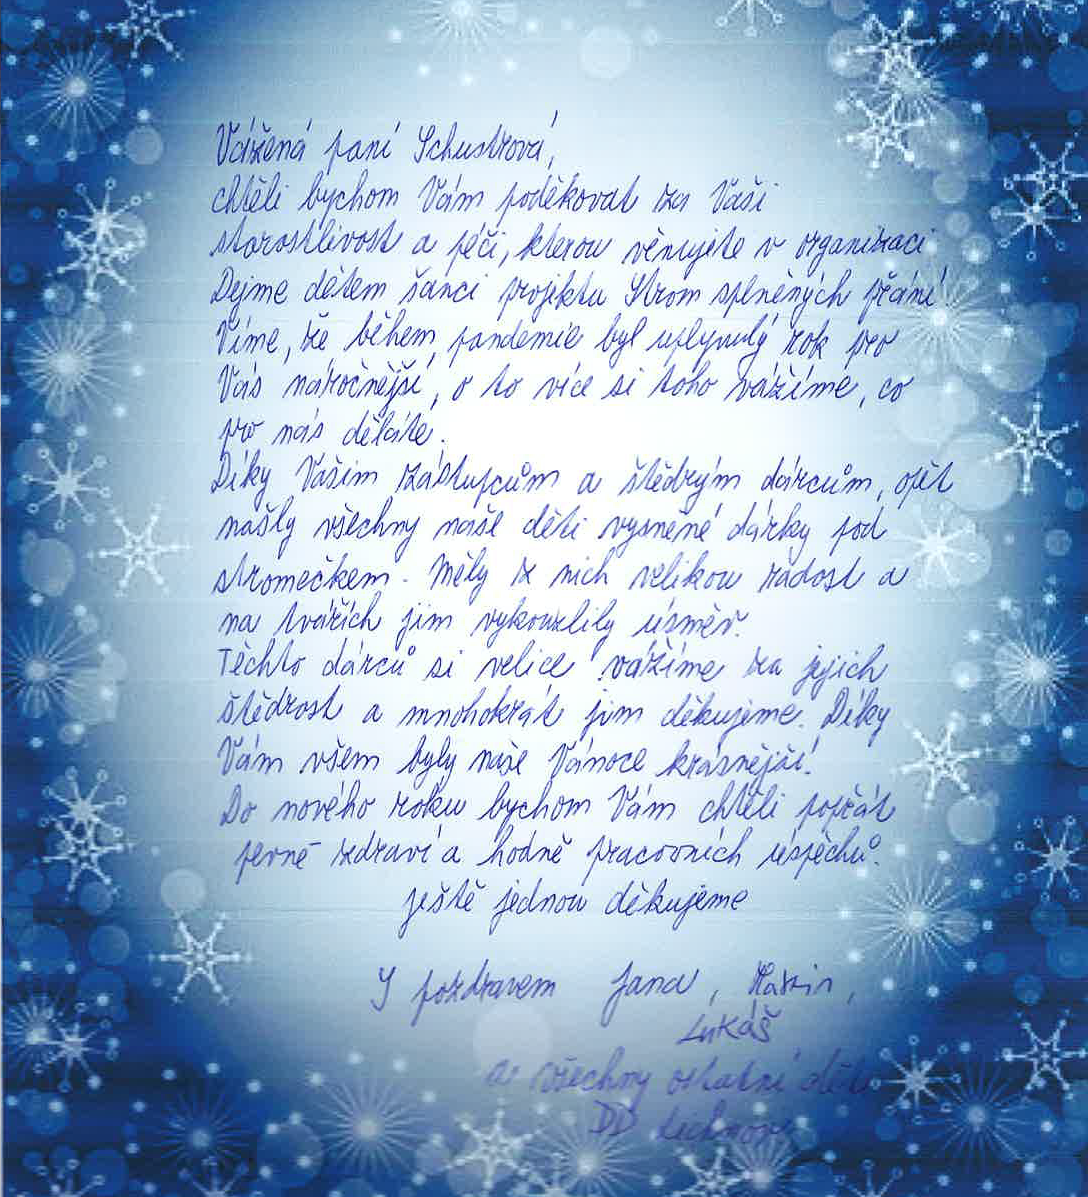 Vážená paní Schustrová,
chtěli bychom Vám poděkovat za Vaši
starostlivost a péči, kterou věnujete v organizaci
Dejme dětem šanci projektu Strom splněných přání
Víme, že během pandemie byl uplynulý rok pro
Vás náročnější, o to více si toho vážíme, co
pro nás děláte.
Díky Vašim zástupcům a štědrým dárcům, opět
našly všechny naše děti vysněné dárky pod
stromečkem. Měly z nich velikou radost a
na tvářích jim vykouzlily úsměv.
Těchto dárců si velice vážíme za jejich
štědrost a mnohokrát jim děkujeme. Díky
Vám všem byly naše Vánoce krásnější.
Do nového roku bychom Vám chtěli popřát
pevné zdraví a hodně pracovních úspěchů.
ještě jednou děkujeme
S pozdravem Jana, Martin,
Lukáš
a všechny ostatní děti
DD